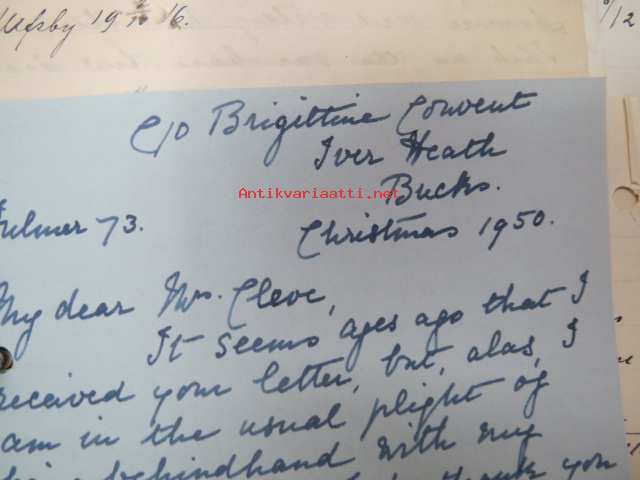 19 16.
C/o Brigittine Convent
Iver Heath
Antikvariaatti.net
Bucks.
Fulmer 73.
Christmas 1950.
My dear Mrs. Cleve,
It seems ages ago that I
received your letter, but, alas, I
am in the usual plight of
behindhand with my
thank you